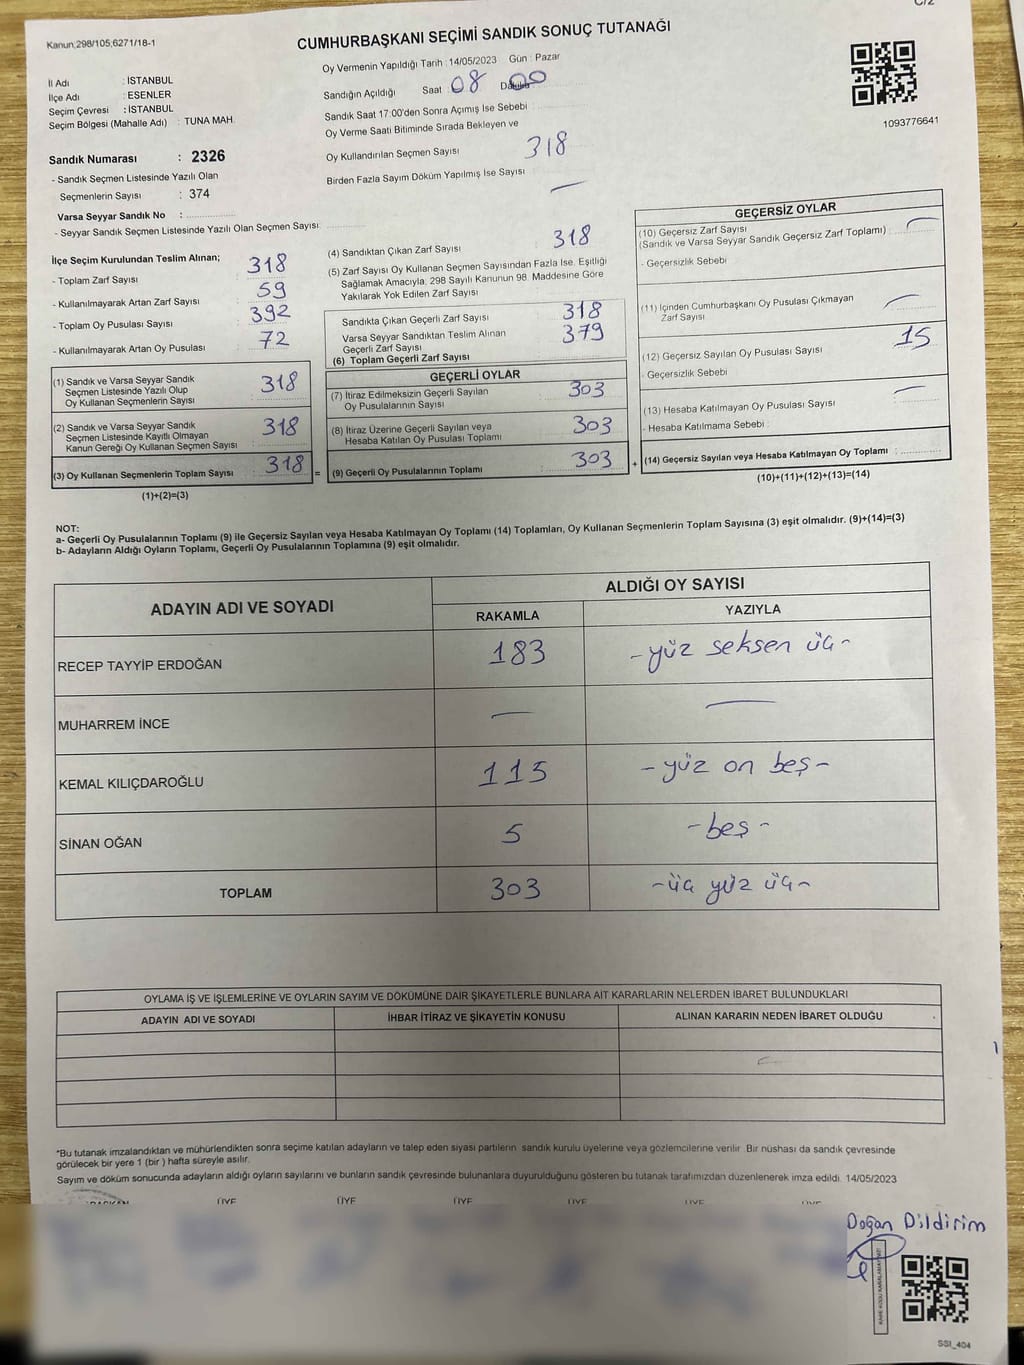 C/2
Kanun:298/105;6271/18-1
CUMHURBAŞKANI SEÇİMİ SANDIK SONUÇ TUTANAĞI
İl Adı : İSTANBUL
İlçe Adı : ESENLER
Seçim Çevresi : İSTANBUL
Seçim Bölgesi (Mahalle Adı) : TUNA MAH.
Sandık Numarası : 2326
- Sandık Seçmen Listesinde Yazılı Olan
Seçmenlerin Sayısı : 374
Varsa Seyyar Sandık No :
- Seyyar Sandık Seçmen Listesinde Yazılı Olan Seçmen Sayısı:
Oy Vermenin Yapıldığı Tarih : 14/05/2023 Gün : Pazar
Sandığın Açıldığı Saat : 08 Dakika 00
Sandık Saat 17:00'den Sonra Açımış İse Sebebi :
Oy Verme Saati Bitiminde Sırada Bekleyen ve
Oy Kullandırılan Seçmen Sayısı : 318
Birden Fazla Sayım Döküm Yapılmış İse Sayısı : —
1093776641
İlçe Seçim Kurulundan Teslim Alınan;
- Toplam Zarf Sayısı : 318
- Kullanılmayarak Artan Zarf Sayısı : 59
- Toplam Oy Pusulası Sayısı : 392
- Kullanılmayarak Artan Oy Pusulası : 72
(1) Sandık ve Varsa Seyyar Sandık
Seçmen Listesinde Yazılı Olup
Oy Kullanan Seçmenlerin Sayısı : 318
(2) Sandık ve Varsa Seyyar Sandık
Seçmen Listesinde Kayıtlı Olmayan
Kanun Gereği Oy Kullanan Seçmen Sayısı : 318
(3) Oy Kullanan Seçmenlerin Toplam Sayısı : 318 =
(1)+(2)=(3)
(4) Sandıktan Çıkan Zarf Sayısı : 318
(5) Zarf Sayısı Oy Kullanan Seçmen Sayısından Fazla İse, Eşitliği
Sağlamak Amacıyla, 298 Sayılı Kanunun 98. Maddesine Göre
Yakılarak Yok Edilen Zarf Sayısı :
Sandıkta Çıkan Geçerli Zarf Sayısı : 318
Varsa Seyyar Sandıktan Teslim Alınan
Geçerli Zarf Sayısı : 379
(6) Toplam Geçerli Zarf Sayısı :
GEÇERLİ OYLAR
(7) İtiraz Edilmeksizin Geçerli Sayılan
Oy Pusulalarının Sayısı : 303
(8) İtiraz Üzerine Geçerli Sayılan veya
Hesaba Katılan Oy Pusulası Toplamı : 303
(9) Geçerli Oy Pusulalarının Toplamı : 303 +
GEÇERSİZ OYLAR
(10) Geçersiz Zarf Sayısı : —
(Sandık ve Varsa Seyyar Sandık Geçersiz Zarf Toplamı)
- Geçersizlik Sebebi
(11) İçinden Cumhurbaşkanı Oy Pusulası Çıkmayan
Zarf Sayısı : —
(12) Geçersiz Sayılan Oy Pusulası Sayısı : 15
- Geçersizlik Sebebi
(13) Hesaba Katılmayan Oy Pusulası Sayısı : —
- Hesaba Katılmama Sebebi :
(14) Geçersiz Sayılan veya Hesaba Katılmayan Oy Toplamı :
(10)+(11)+(12)+(13)=(14)
NOT:
a- Geçerli Oy Pusulalarının Toplamı (9) ile Geçersiz Sayılan veya Hesaba Katılmayan Oy Toplamı (14) Toplamları, Oy Kullanan Seçmenlerin Toplam Sayısına (3) eşit olmalıdır. (9)+(14)=(3)
b- Adayların Aldığı Oyların Toplamı, Geçerli Oy Pusulalarının Toplamına (9) eşit olmalıdır.
ADAYIN ADI VE SOYADI ALDIĞI OY SAYISI
RAKAMLA YAZIYLA
RECEP TAYYİP ERDOĞAN 183 -yüz seksen üç-
MUHARREM İNCE — —
KEMAL KILIÇDAROĞLU 115 -yüz on beş-
SİNAN OĞAN 5 -beş-
TOPLAM 303 -üç yüz üç-
OYLAMA İŞ VE İŞLEMLERİNE VE OYLARIN SAYIM VE DÖKÜMÜNE DAİR ŞİKAYETLERLE BUNLARA AİT KARARLARIN NELERDEN İBARET BULUNDUKLARI
ADAYIN ADI VE SOYADI İHBAR İTİRAZ VE ŞİKAYETİN KONUSU ALINAN KARARIN NEDEN İBARET OLDUĞU
*Bu tutanak imzalandıktan ve mühürlendikten sonra seçime katılan adayların ve talep eden siyasi partilerin sandık kurulu üyelerine veya gözlemcilerine verilir. Bir nüshası da sandık çevresinde
görülecek bir yere 1 (bir ) hafta süreyle asılır.
Sayım ve döküm sonucunda adayların aldığı oyların sayılarını ve bunların sandık çevresinde bulunanlara duyurulduğunu gösteren bu tutanak tarafımızdan düzenlenerek imza edildi. 14/05/2023
BAŞKAN ÜYE ÜYE ÜYE ÜYE ÜYE ÜYE
Doğan Dildirim
SSI_404